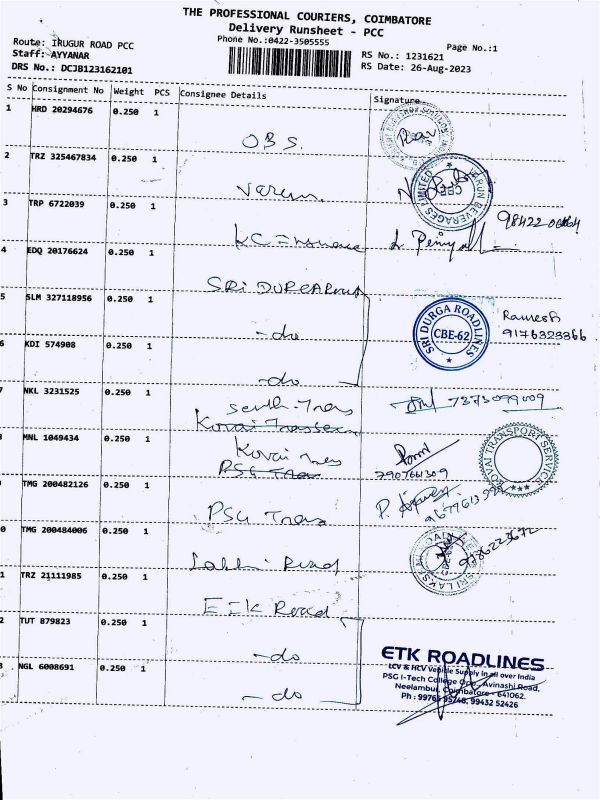 THE PROFESSIONAL COURIERS, COIMBATORE
Delivery Runsheet - PCC
Phone No.:0422-3505555
Page No.:1
Route: IRUGUR ROAD PCC
Staff: AYYANAR
DRS No.: DCJB123162101
RS No.: 1231621
RS Date: 26-Aug-2023
S No Consignment No Weight PCS Consignee Details Signature
1 HRD 20294676 0.250 1
OBS.
2 TRZ 325467834 0.250 1
Varun
VARUN BEVERAGES LIMITED
CBE
3 TRP 6722039 0.250 1
98422
KC
4 EDQ 20176624 0.250 1
SRI DURGA
5 SLM 327118956 0.250 1
SRI DURGA ROADLINES
CBE-62
Ramesh
9176323366
-do
6 KDI 574908 0.250 1
-do
7 NKL 3231525 0.250 1
7373099009
South Trans
Kovai
8 MNL 1049434 0.250 1
KOVAI TRANSPORT SERVICE
Kovai
PSG Trans
790761309
9 TMG 200482126 0.250 1
PSG Trans
0 TMG 200484006 0.250 1
Road
1 TRZ 21111985 0.250 1
ETK Road
2 TUT 879823 0.250 1
-do
3 NGL 6008691 0.250 1
-do
ETK ROADLINES
LCV & HCV Vehicle Supply in all over India
PSG I-Tech College Opp., Avinashi Road,
Neelambur, Coimbatore - 641062.
Ph : 99432 52426